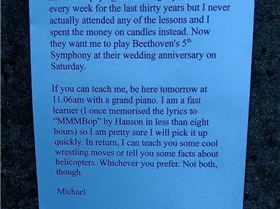 every week for the last thirty years but I never
actually attended any of the lessons and I
spent the money on candles instead. Now
they want me to play Beethoven's 5th
Symphony at their wedding anniversary on
Saturday.
If you can teach me, be here tomorrow at
11.06am with a grand piano. I am a fast
learner (I once memorised the lyrics to
"MMMBop" by Hanson in less than eight
hours) so I am pretty sure I will pick it up
quickly. In return, I can teach you some cool
wrestling moves or tell you some facts about
helicopters. Whichever you prefer. Not both,
though.
Michael